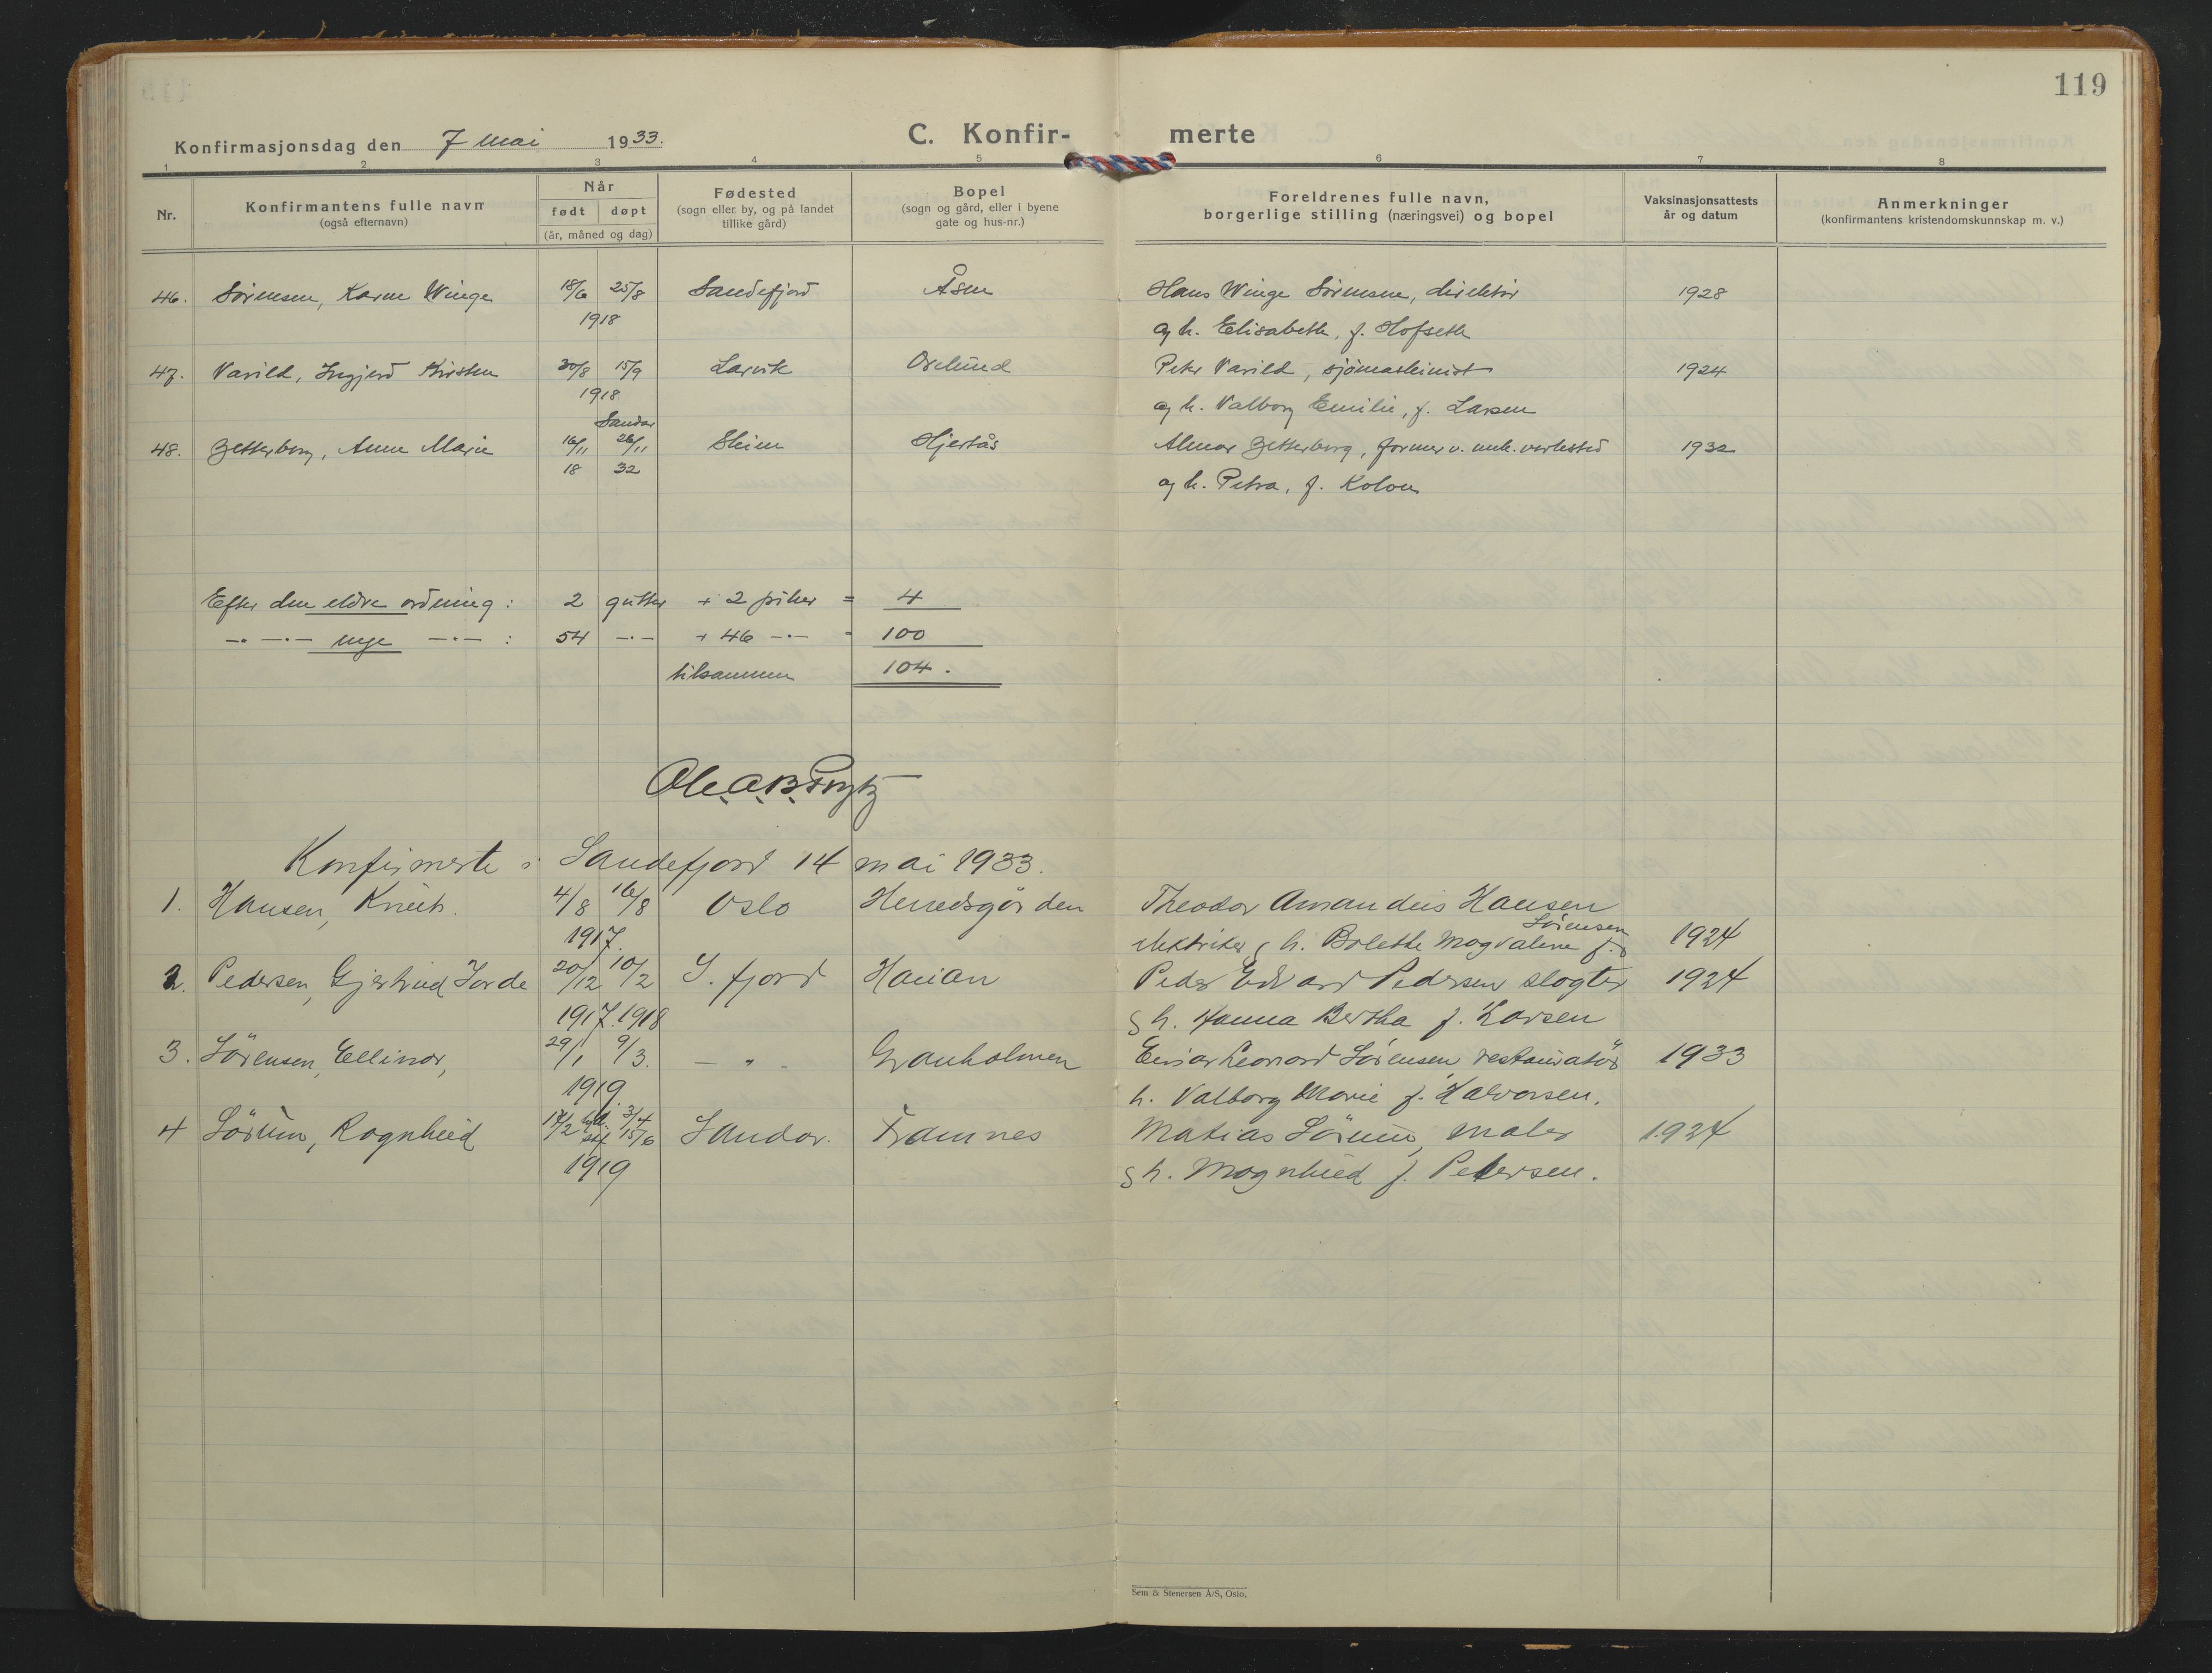 119
Konfirmasjonsdag den 7 mai 1933.
C. Konfir- merte
1 2 3 4 5 6 7 8
Nr.
Konfirmantens fulle navn
(også efternavn)
Når
født døpt
(år, måned og dag)
Fødested
(sogn eller by, og på landet
tillike gård)
Bopel
(sogn og gård, eller i byene
gate og hus-nr.)
Foreldrenes fulle navn,
borgerlige stilling (næringsvei) og bopel
Vaksinasjonsattests
år og datum
Anmerkninger
(konfirmantens kristendomskunnskap m. v.)
46. Sørensen, Karen Winge 18/6 25/8 Sandefjord Åsen Hans Winge Sørensen, direktør 1928
1918 og h. Elisabeth, f. Hofseth
47. Varild, Ingjerd Kirsten 30/8 15/9 Larvik Oselund Peter Varild, sjømaskinist 1924
1918 og h. Valborg Emilie, f. Larsen
Sandar
48. Zetterborg, Anne Marie 16/11 26/11 Skien Hjertås Almar Zetterborg, former v. mek. verksted 1932
18 32 og h. Petra, f. Kolou
Efter den eldre ordning: 2 gutter + 2 piker = 4
-·- -·- nye -·- : 54 -·- + 46 -·- = 100
tilsammen 104.
Ole A. B.
Konfirmerte i Sandefjord 14 mai 1933.
1. Hansen, Knut. 4/8 16/8 Oslo Herredsgården Theodor Amandus Hansen
1917. elektriker g h. Bolette Magdalene f. Sørensen 1924
2. Pedersen, Gjertrud Jorde 20/12 10/2 S.fjord Haukan Peder Edvard Pedersen slagter 1924
1917. 1918 g h. Hanna Bertha f. Larsen
3. Sørensen, Ellinor, 29/1 9/3. — " - Granholmen Einar Leonard Sørensen restauratør 1933
1919. h. Valborg Marie f. Halvorsen.
4 Sørum, Ragnhild 17/2 hjd. 3/4 stf 15/6 Sandar. Framnes Matias Sørum, maler 1924
1919 g h. Magnhild f. Petersen.
Sem & Stenersen A/S, Oslo.